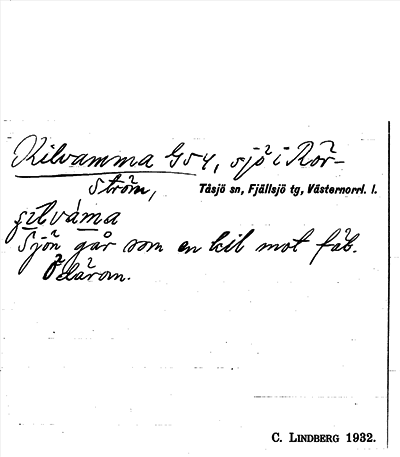 Kilvamma G54, sjö i Rör-
ström,
Tåsjö sn, Fjällsjö tg, Västernorrl. l.
sjön går som en kil mot fäb.
C. LINDBERG 1932.